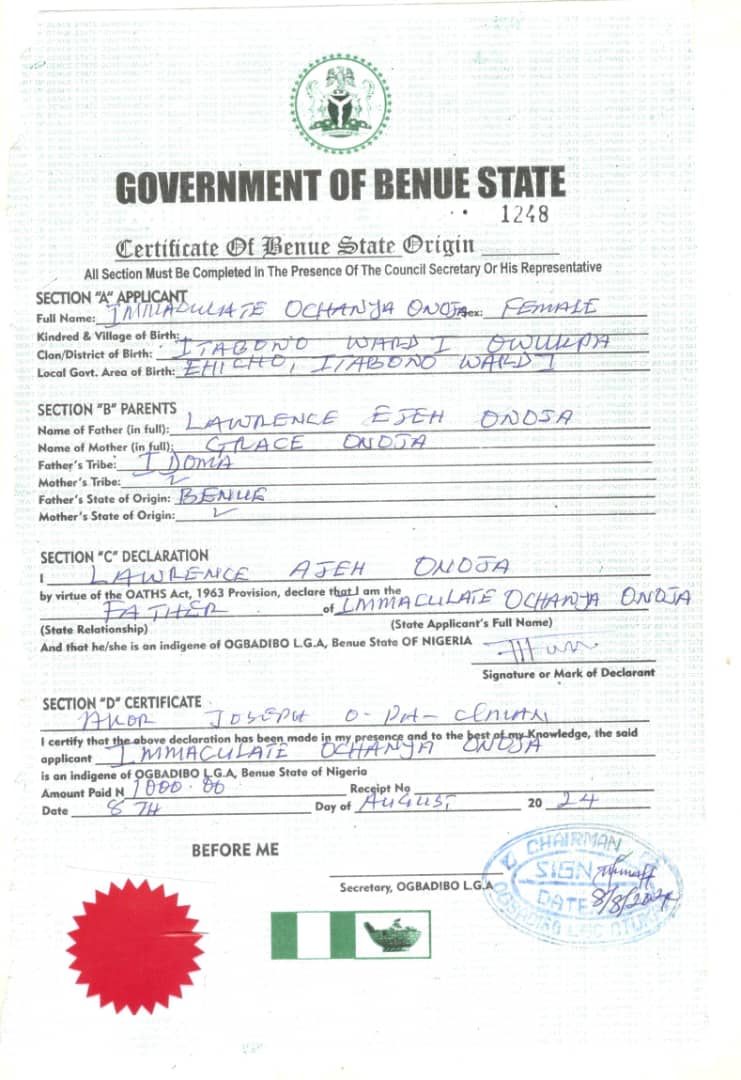 GOVERNMENT OF BENUE STATE
1248
Certificate Of Benue State Origin
All Section Must Be Completed in The Presence Of The Council Secretary Or His Representative
SECTION "A" APPLICANT
Full Name: IMMACULATE OCHANYA ONOJA Sex: FEMALE
Kindred & Village of Birth:
Clan/District of Birth: ITABONO WARD I OWUKPA
Local Govt. Area of Birth: EHICHO, ITABONO WARD I
SECTION "B" PARENTS
Name of Father (in full): LAWRENCE EJEH ONOJA
Name of Mother (in full): GRACE ONOJA
Father's Tribe: IDOMA
Mother's Tribe:
Father's State of Origin: BENUE
Mother's State of Origin:
SECTION "C" DECLARATION
I LAWRENCE AJEH ONOJA
by virtue of the OATHS Act, 1963 Provision, declare that I am the
FATHER of IMMACULATE OCHANYA ONOJA
(State Relationship) (State Applicant's Full Name)
And that he/she is an indigene of OGBADIBO L.G.A, Benue State OF NIGERIA
Signature or Mark of Declarant
SECTION "D" CERTIFICATE
AKOR JOSEPH
I certify that the above declaration has been made in my presence and to the best of my Knowledge, the said
applicant IMMACULATE OCHANYA ONOJA
is an indigene of OGBADIBO L.G.A, Benue State of Nigeria
Amount Paid N 1000.00 Receipt No
Date 8TH Day of AUGUST, 20 24
BEFORE ME
Secretary, OGBADIBO L.G.A
CHAIRMAN
SIGN
DATE 8/8/2024
OGBADIBO LGC OTUKPA